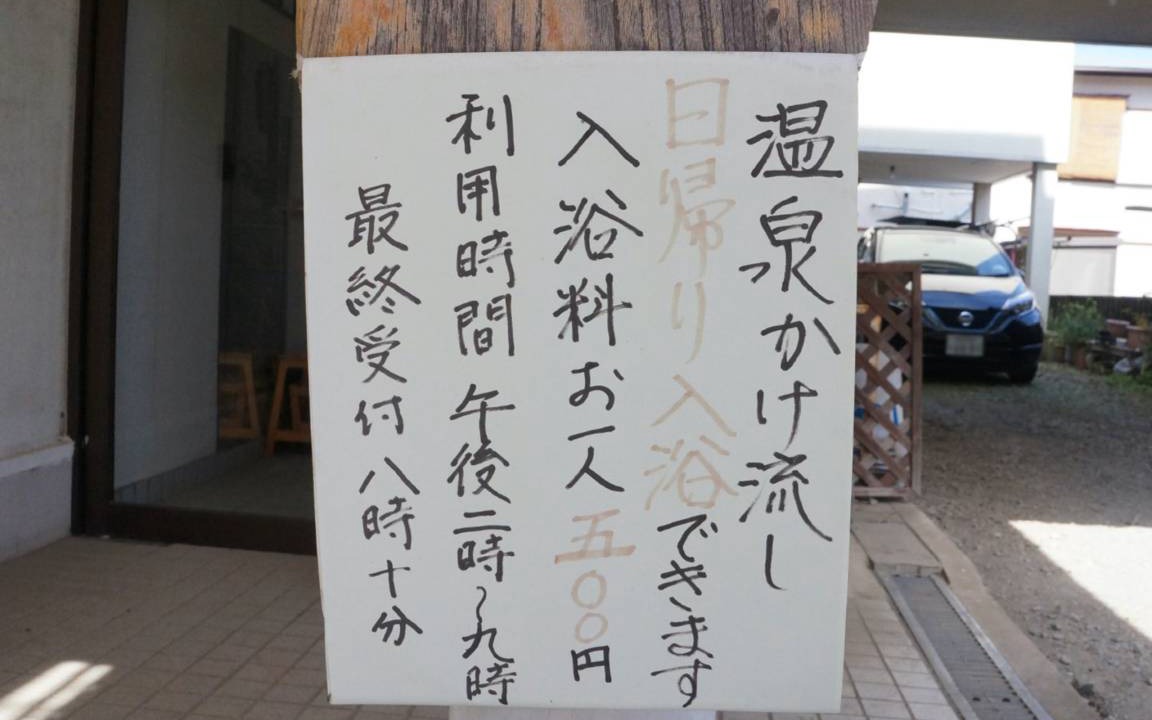 温泉かけ流し
日帰り入浴できます
入浴料お一人五〇〇円
利用時間 午後二時〜九時
最終受付 八時十分